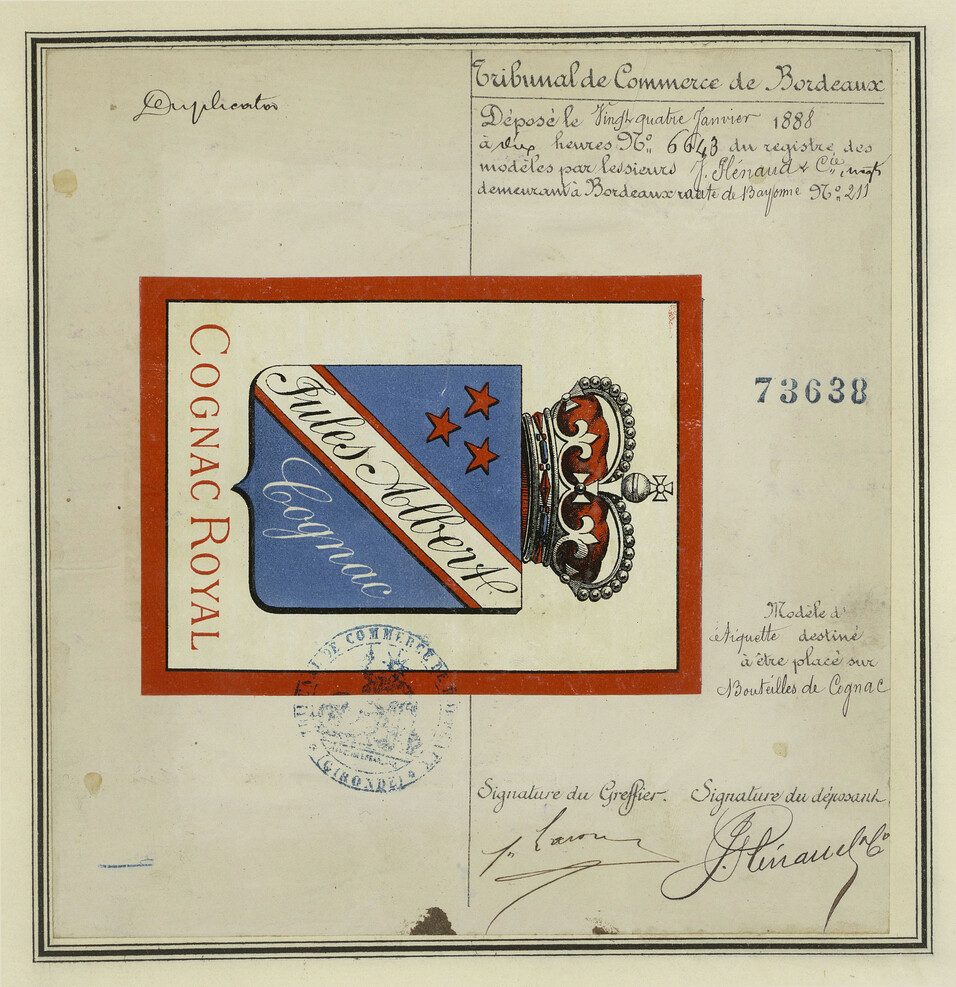 Duplicata
Tribunal de Commerce de Bordeaux
Déposé le Vingt quatre Janvier 1888
à dix heures No. 6643 du registre des
modèles par les sieurs J. Hénaud & Cie
demeurant à Bordeaux route de Bayonne No. 211
COGNAC ROYAL
Jules Albert
Cognac
73638
Modèle d'
étiquette destiné
à être placé sur
Bouteilles de Cognac
DE COMMERCE DE
(GIRONDE)
Signature du Greffier. Signature du déposant
J. Hénaud & Co